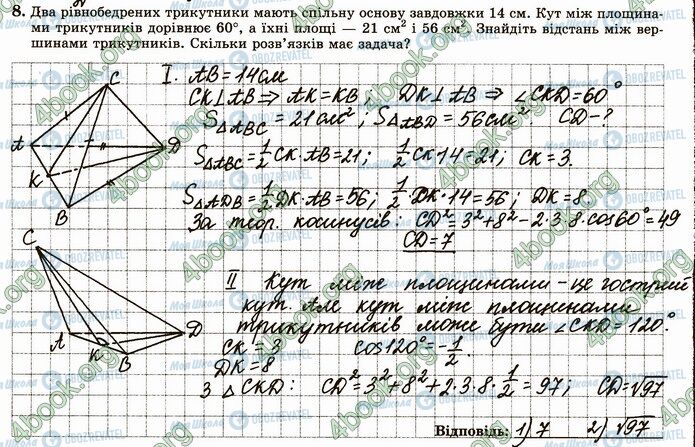 8. Два рівнобедрених трикутники мають спільну основу завдовжки 14 см. Кут між площина-
ми трикутників дорівнює 60°, а їхні площі — 21 см² і 56 см². Знайдіть відстань між вер-
шинами трикутників. Скільки розв'язків має задача?
I. AB = 14 см
CK⊥AB ⇒ AK = KB; DK⊥AB ⇒ ∠CKD = 60°
S△ABC = 21 см²; S△ABD = 56 см² CD - ?
S△ABC = 1/2 CK · AB = 21; 1/2 CK · 14 = 21; CK = 3.
S△ADB = 1/2 DK · AB = 56; 1/2 DK · 14 = 56; DK = 8
За теор. косинусів: CD² = 3² + 8² - 2·3·8·cos60° = 49
CD = 7
C
A
D
K
B
II Кут між площинами - це гострий
кут. Але кут між площинами
трикутників може бути ∠CKD = 120°
CK = 3 cos120° = -1/2.
DK = 8
З △CKD: CD² = 3² + 8² + 2·3·8·1/2 = 97; CD = √97
C
A
K
B
D
Відповідь: 1) 7 2) √97
4book.org
Моя Школа
OBOZREVATEL